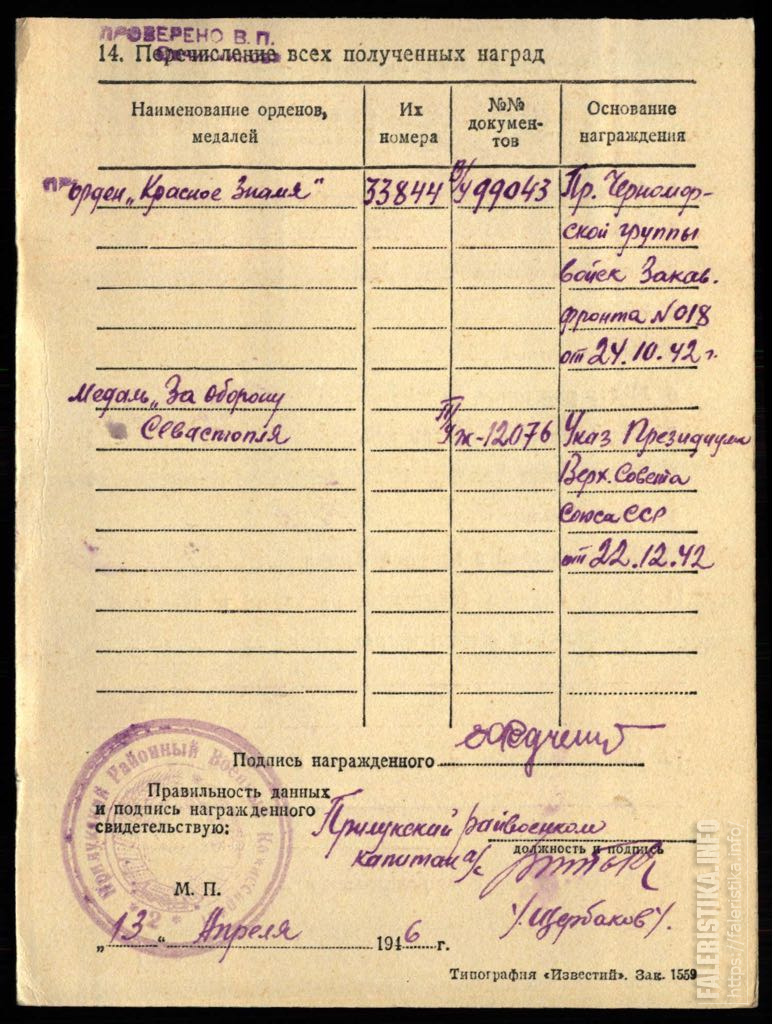 ПРОВЕРЕНО В. П.
14. Перечисление всех полученных наград
Наименование орденов, медалей
Их номера
№№ документов
Основание награждения
орден „Красное Знамя" 33844 99043 Пр. Черномор-
ской группы
войск Закав.
фронта № 018
от 24.10.42 г.
Медаль „За оборону
Севастополя
Уж-12076 Указ Президиума
Верх. Совета
Союза ССР
от 22.12.42
Подпись награжденного
Правильность данных
и подпись награжденного
свидетельствую:
Прилукский райвоенком
должность и подпись
капитан а/с
/Щербаков/.
М. П.
„13" Апреля 1946 г.
Прилукский Районный Военный Комиссариат
* 2 *
Типография «Известий». Зак. 1559
FALERISTIKA.INFO
https://faleristika.info/